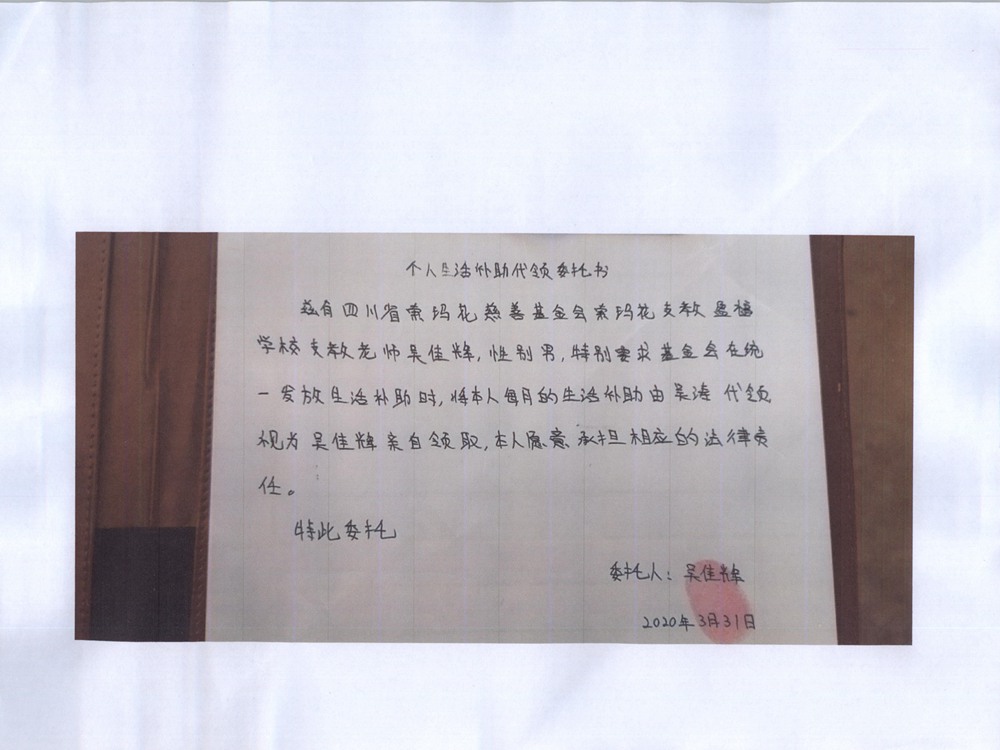 个人生活补助代领委托书
兹有四川省索玛花慈善基金会索玛花支教盈德
学校支教老师吴佳辉,性别男,特别要求基金会在统
一发放生活补助时,将本人每月的生活补助由吴涛代领
视为吴佳辉亲自领取,本人愿意承担相应的法律责
任。
特此委托
委托人:吴佳辉
2020年3月31日